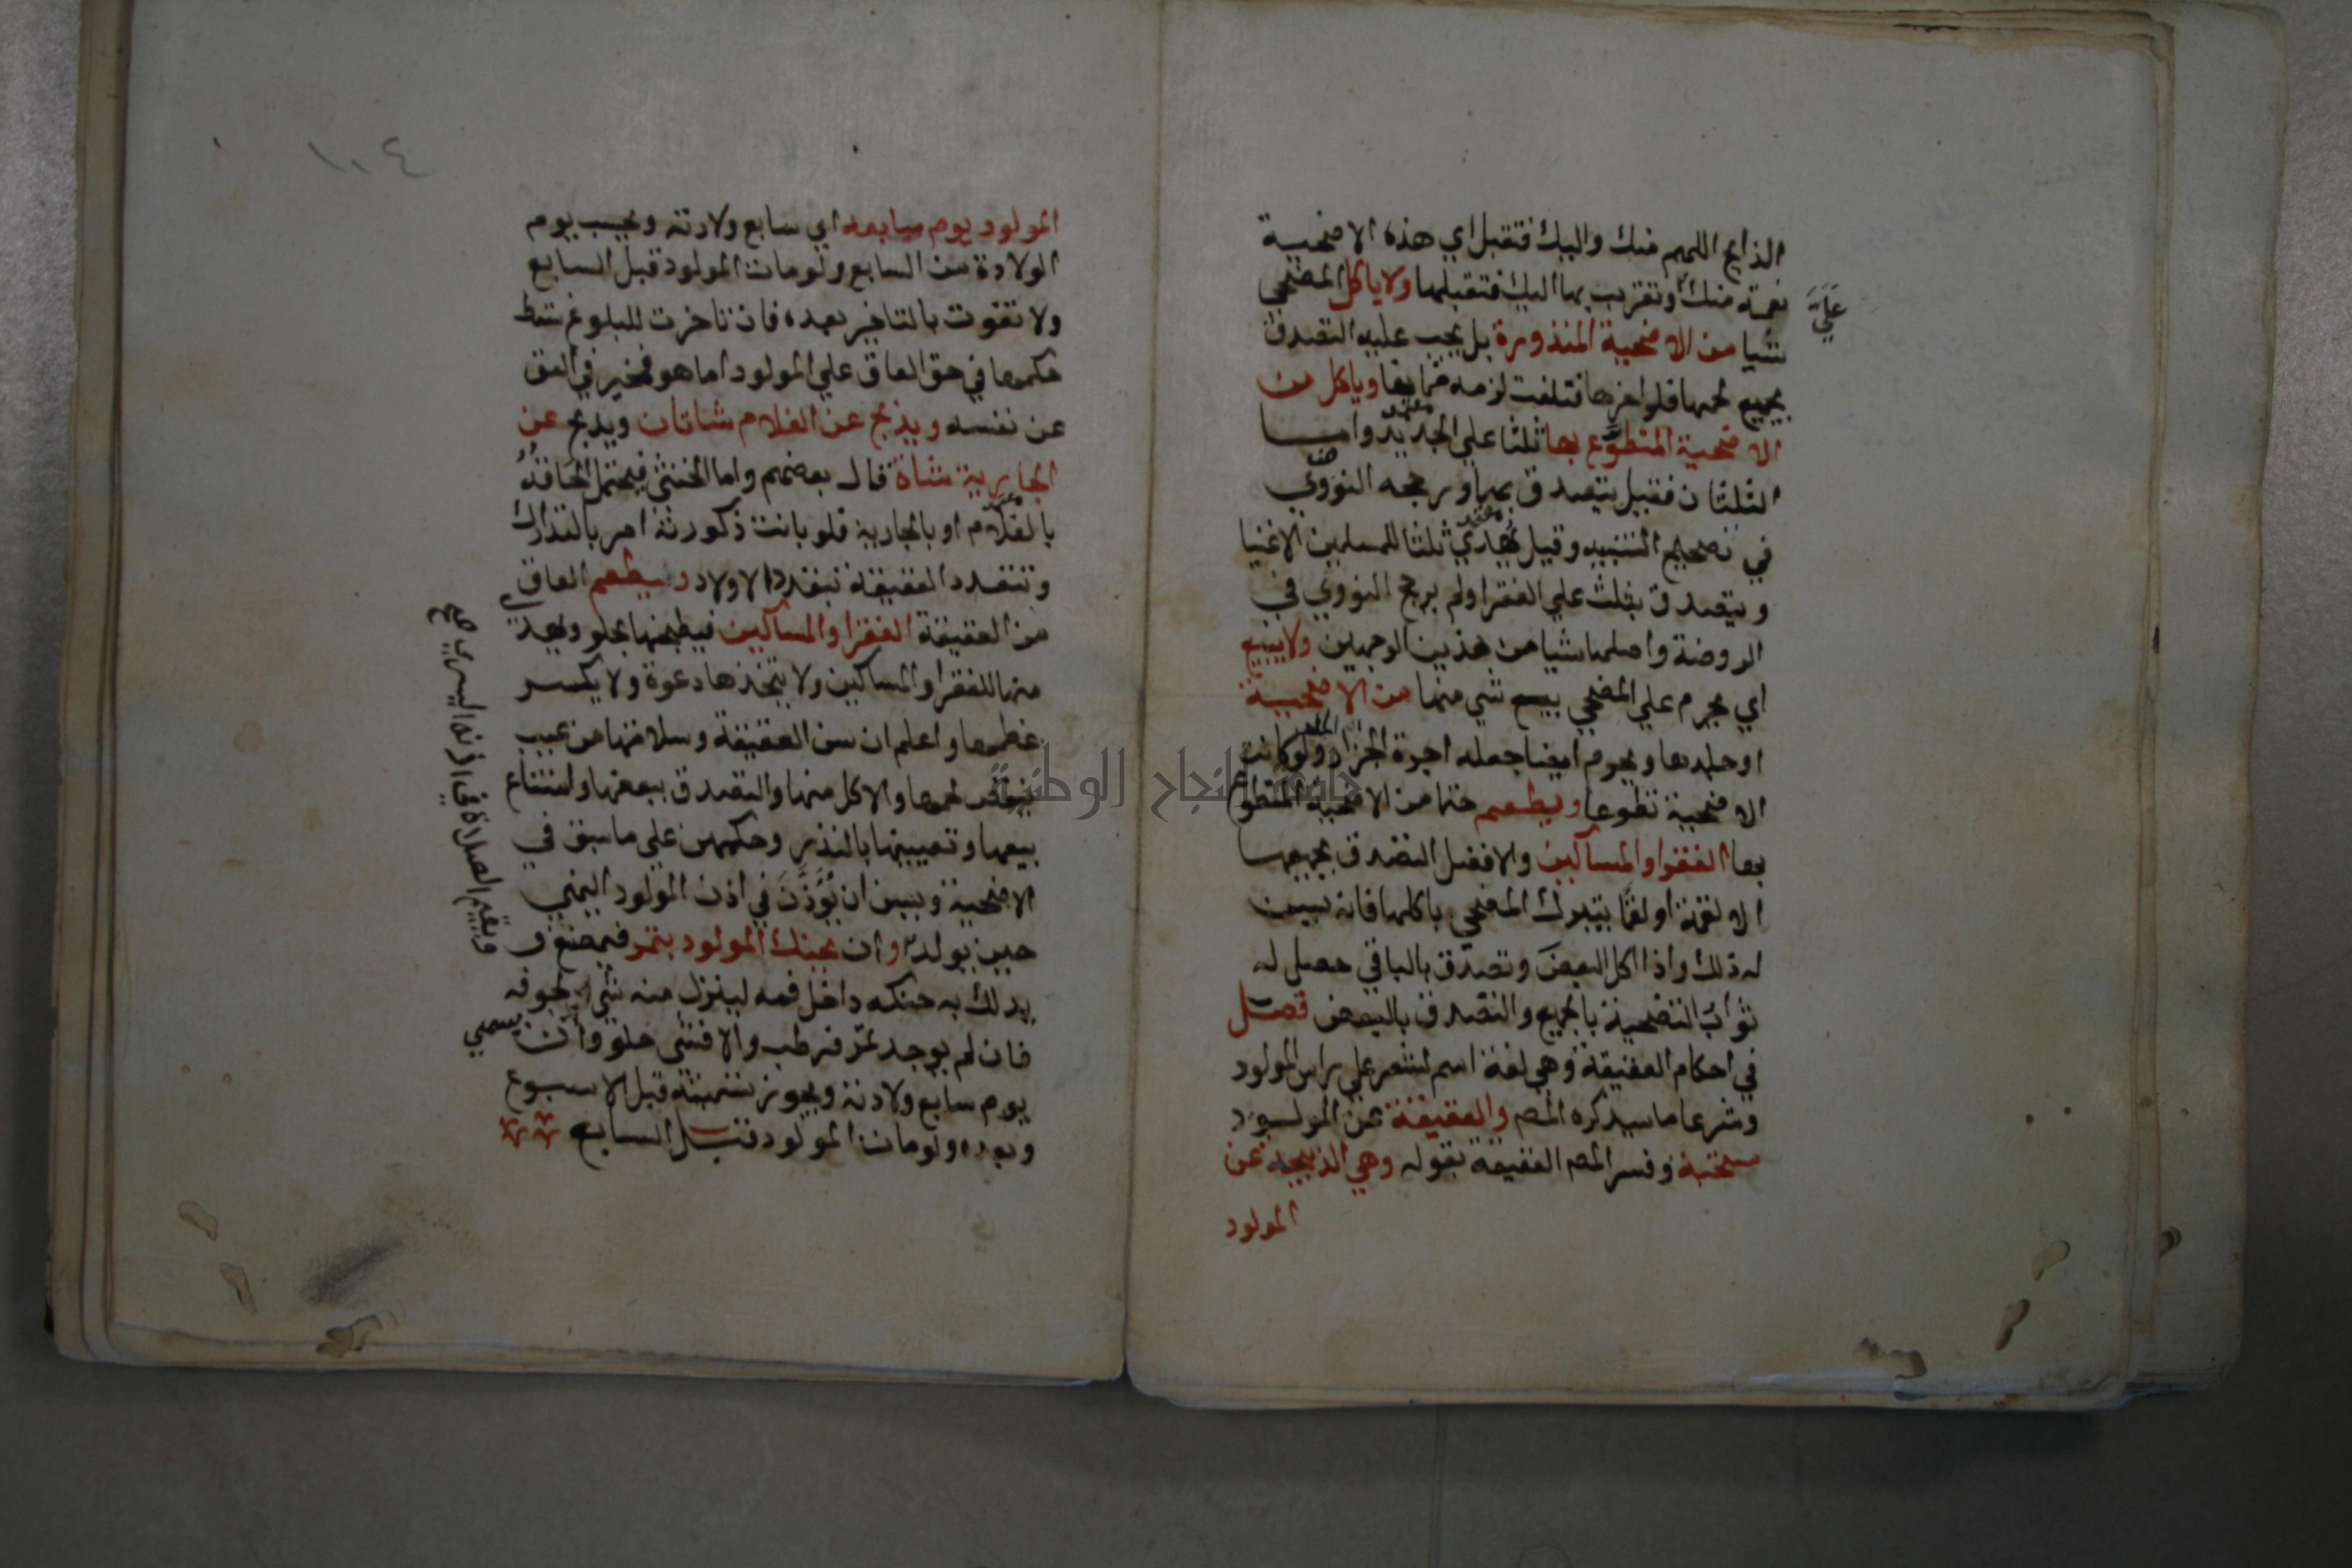 الذابح اللهم منك واليك فتقبل اي هذه الاضحية
نعمة منك وتقربت بها اليك فتقبلها ولا ياكل المضحي
عليَّ
شيا من الاضحية المنذورة بل يجب عليه التصدق
بجميع لحمها فلو اخرها فتلفت لزمه ضمانها وياكل من
الاضحية المتطوع بها ثلثا علي الجديد واما
معتمد
الثلثان فقيل يتصدق بهما ورجحه النووي
في تصحيح التنبيه وقيل يهدي ثلثا للمسلمين الاغنيا
معتمد
ويتصدق بثلث علي الفقرا ولم يرجح النووي في
الروضة واصلها شيا من هذين الوجهين ولا يبيع
اي يحرم علي المضحي بيع شي منها من الاضحية
او جلدها ويحرم ايضا جعله اجرة الجزار ولو كانت
الاضحية تطوعا ويطعم حتما من الاضحية المتطوع
بها الفقرا والمساكين والافضل التصدق بجميعها
الا لقمة او لقما يتبرك المضحي باكلها فانه يسن
له ذلك واذا اكل البعض وتصدق بالباقي حصل له
ثواب التضحية بالجميع والتصدق بالبعض فصل
في احكام العقيقة وهي لغة اسم لشعر علي راس المولود
وشرعا ما سيذكره المص والعقيقة عن المولود
مستحبة وفسر المص العقيقة بقوله وهي الذبيحة عن
المولود
جامعة النجاح الوطنية
١٠٤
المولود يوم سابعه اي سابع ولادته ويحسب يوم
الولادة من السابع ولو مات المولود قبل السابع
ولا تفوت بالتاخير بعده فان تاخرت للبلوغ سقط
حكمها في حق العاق علي المولود اما هو فمخير في العق
عن نفسه ويذبح عن الغلام شاتان ويذبح عن
الجارية شاة قال بعضهم واما الخنثي فيحتمل الحاقه
بالغلام او بالجارية فلو بانت ذكورته امر بالتدارك
وتتعدد العقيقة بتعدد الاولاد ويطعم العاق
من العقيقة الفقرا والمساكين فيطبخها بحلو ويهدي
منها للفقرا والمساكين ولا يتخذها دعوة ولا يكسر
عظمها واعلم ان سن العقيقة وسلامتها من عيب
ينقص لحمها والاكل منها والتصدق ببعضها وامتناع
بيعها وتعيينها بالنذر وحكمهن علي ما سبق في
الاضحية ويسن ان يؤذن في اذن المولود اليمني
حين يولد وان يحنك المولود بتمر فيمضغ و
يدلك به حنكه داخل فمه لينزل منه شي لجوفه
فان لم يوجد تمر فرطب والا فشي حلو وان يسمي
يوم سابع ولادته ويجوز تسميته قبل الاسبوع
وبعده ولو مات المولود قبل السابع
ويقيم الصلاة في اذنه اليسري صح